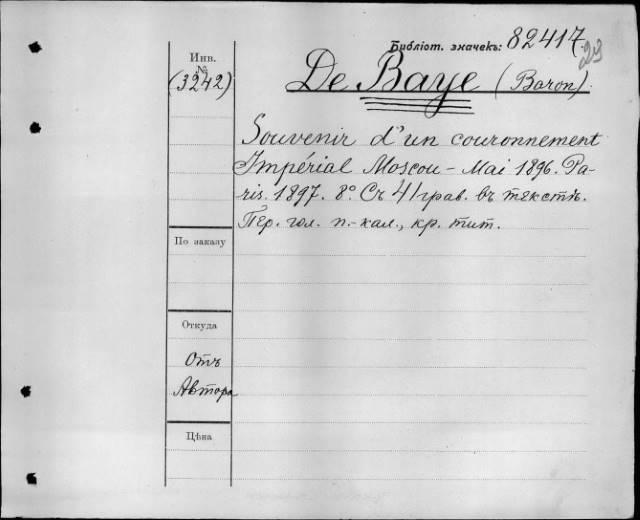 Библіот. значекъ: 82417
23
Инв.
№
(3242)
De Baye (Baron).
Souvenir d'un couronnement
Impérial Moscou - Mai 1896. Pa-
ris. 1897. 8° Съ 41 грав. въ текстѣ.
Пер. гол. п.-кал., кр. тит.
По заказу
Откуда
Отъ
Автора
Цѣна